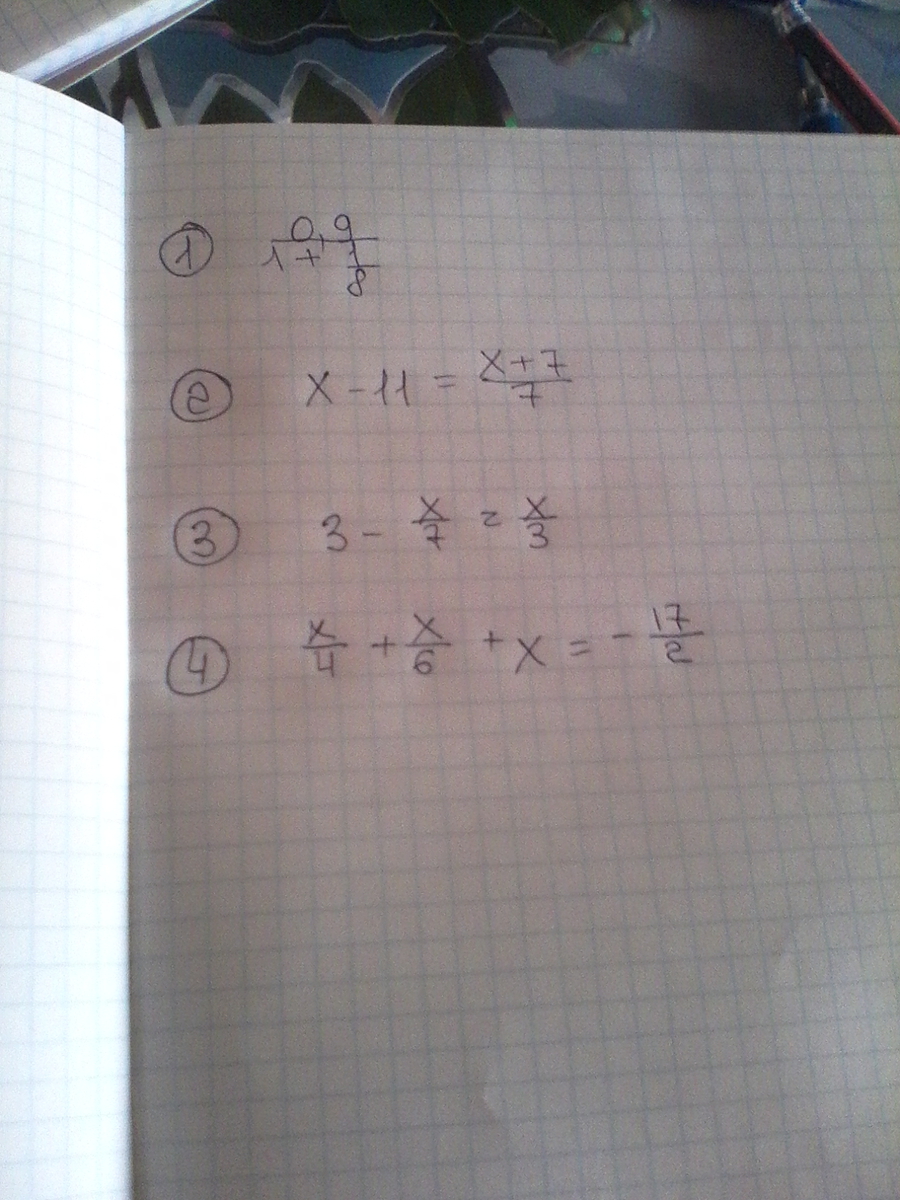 ① 0,9/(1 + 1/8)
② x - 11 = (x + 7)/7
③ 3 - x/7 = x/3
④ x/4 + x/6 + x = - 17/2